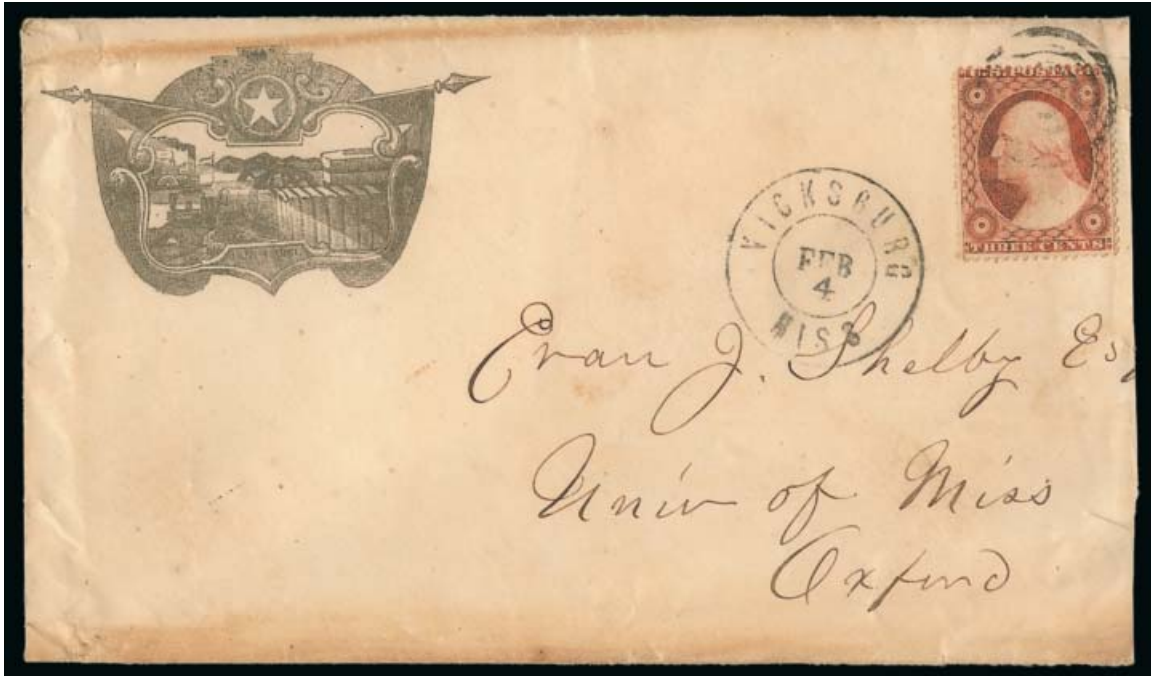 THREE CENTS
VICKSBURG
FEB
4
MISS
Evan J. Shelby Esq
Univ of Miss
Oxford